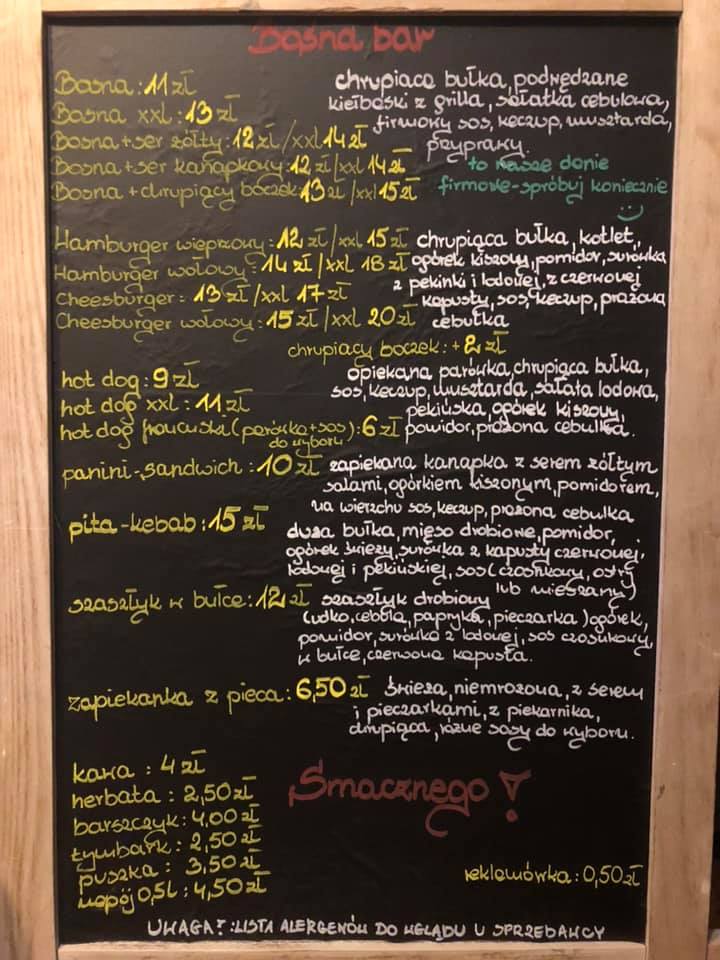 Bosna bar
Bosna : 11 zł
Bosna xxl : 13 zł
Bosna + ser żółty : 12 zł / xxl 14 zł
Bosna + ser kanapkowy : 12 zł / xxl 14 zł
Bosna + chrupiący boczek : 13 zł / xxl 15 zł
chrupiąca bułka, podwędzane
kiełbaski z grilla, sałatka cebulowa,
firmowy sos, keczup, musztarda,
przyprawy.
to nasze danie
firmowe - spróbuj koniecznie
Hamburger wieprzowy : 12 zł / xxl 15 zł
Hamburger wołowy : 14 zł / xxl 18 zł
Cheesburger : 13 zł / xxl 17 zł
Cheesburger wołowy : 15 zł / xxl 20 zł
chrupiąca bułka, kotlet,
ogórek kiszony, pomidor, surówka
z pekinki i lodowej, z czerwonej
kapusty, sos, keczup, prażona
cebulka
chrupiący boczek : + 2 zł
hot dog : 9 zł
hot dog xxl : 11 zł
hot dog francuski (parówka + sos
do wyboru) : 6 zł
opiekana parówka, chrupiąca bułka,
sos, keczup, musztarda, sałata lodowa,
pekińska, ogórek kiszony,
pomidor, prażona cebulka.
panini - sandwich : 10 zł
zapiekana kanapka z serem żółtym
salami, ogórkiem kiszonym, pomidorem,
na wierzchu sos, keczup, prażona cebulka
pita - kebab : 15 zł
duża bułka, mięso drobiowe, pomidor,
ogórek świeży, surówka z kapusty czerwonej,
lodowej i pekińskiej, sos (czosnkowy, ostry
lub mieszany)
szaszłyk w bułce : 12 zł
szaszłyk drobiowy
(udko, cebula, papryka, pieczarka) ogórek,
pomidor, surówka z lodowej, sos czosnkowy,
w bułce, czerwona kapusta.
zapiekanka z pieca : 6,50 zł
świeża, niemrożona, z serem
i pieczarkami, z piekarnika,
chrupiąca, różne sosy do wyboru.
kawa : 4 zł
herbata : 2,50 zł
barszczyk : 4,00 zł
tymbark : 2,50 zł
puszka : 3,50 zł
napój 0,5L : 4,50 zł
Smacznego !
reklamówka : 0,50 zł
UWAGA! : LISTA ALERGENÓW DO WGLĄDU U SPRZEDAWCY